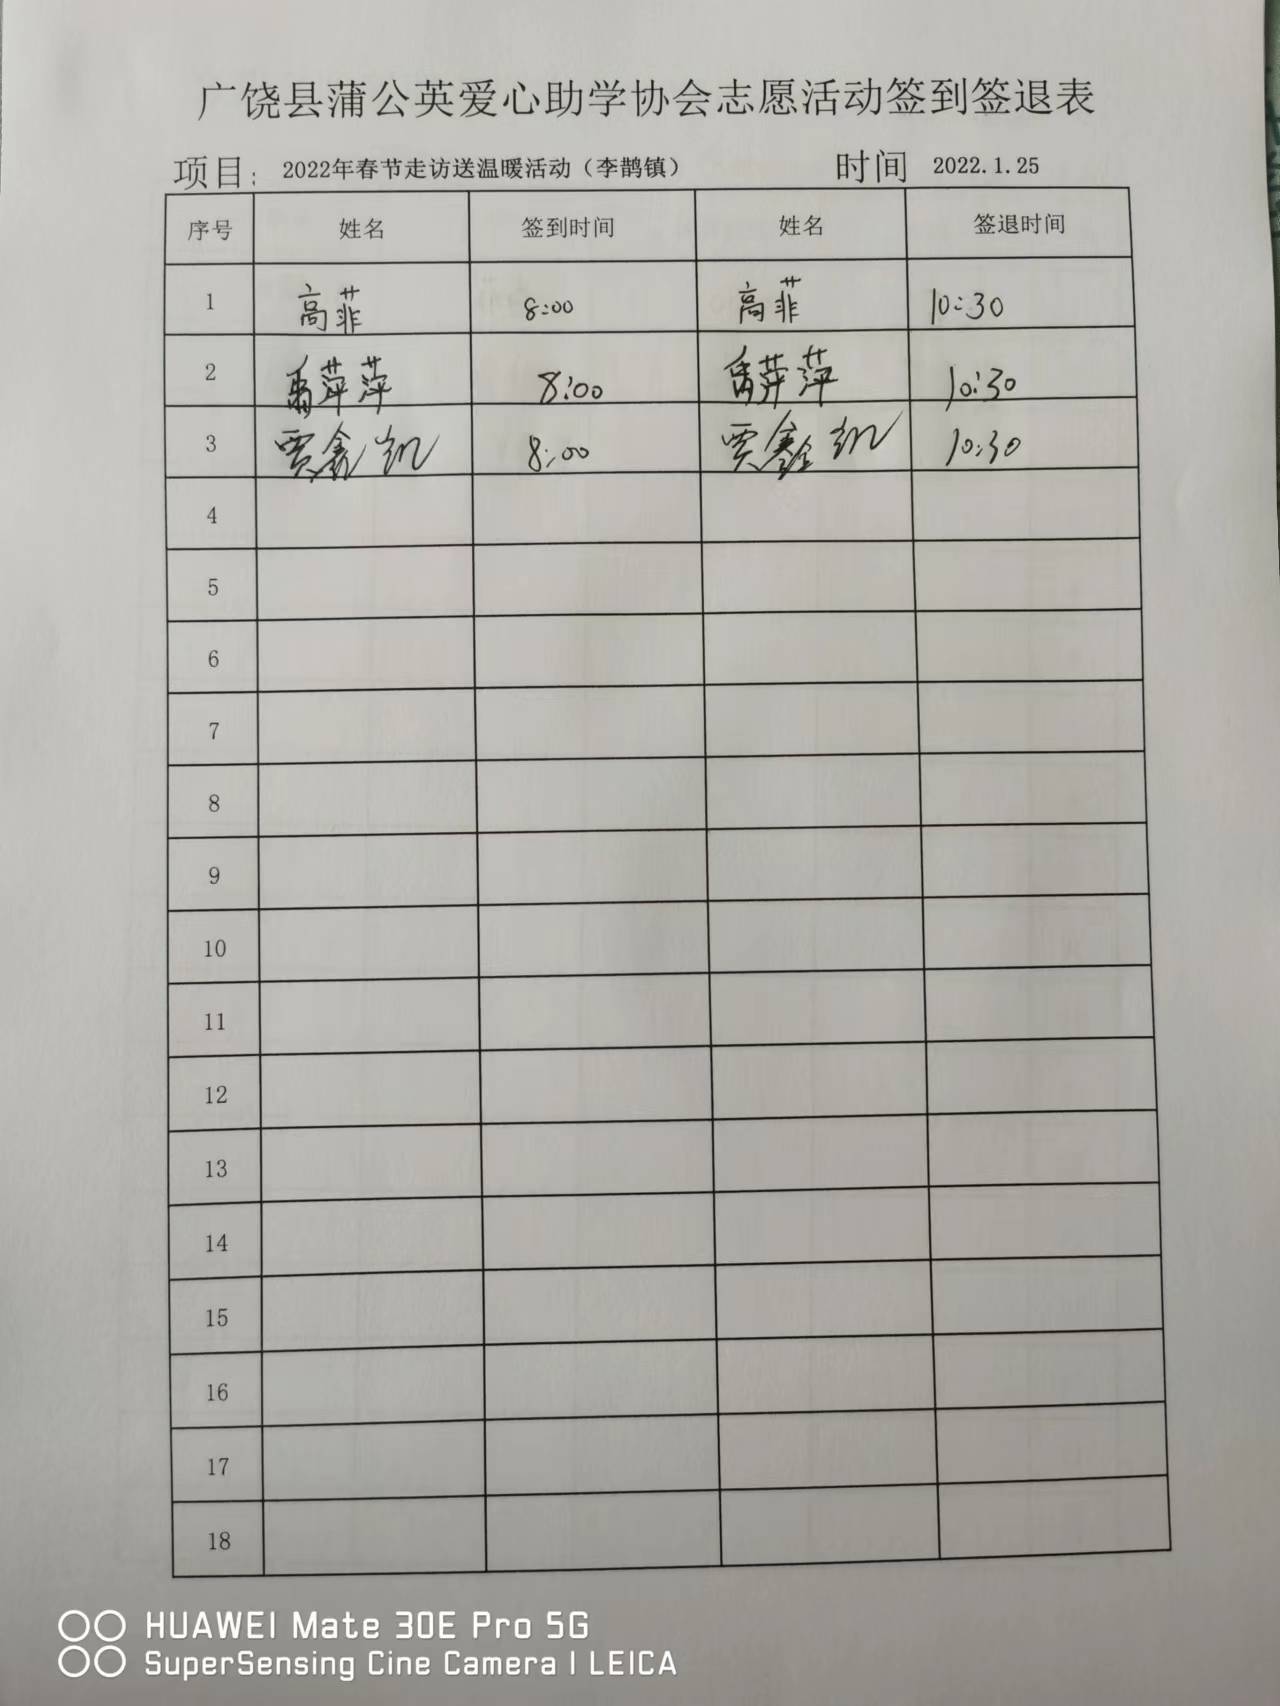 广饶县蒲公英爱心助学协会志愿活动签到签退表
项目: 2022年春节走访送温暖活动（李鹊镇） 时间 2022.1.25
序号 姓名 签到时间 姓名 签退时间
1 高菲 8:00 高菲 10:30
2 萍萍 8:00 萍 10:30
3 贾鑫凯 8:00 贾鑫凯 10:30
4
5
6
7
8
9
10
11
12
13
14
15
16
17
18
HUAWEI Mate 30E Pro 5G
SuperSensing Cine Camera | LEICA